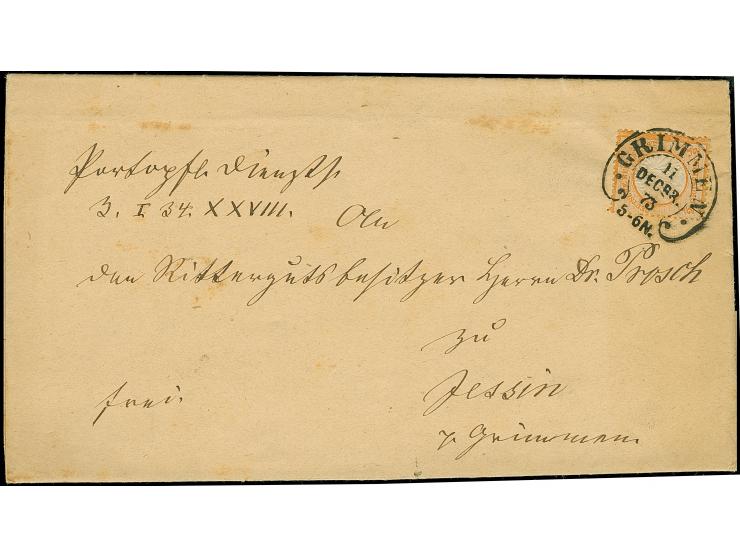 GRIMMEN
11
DECBR.
73
5-6N.
Portopfl. Dienssts.
3. I 34. XXVIII.
An
den Rittergutsbesitzer Herrn Dr. Prosch
zu
Jessin
p Grimmen.
frei.